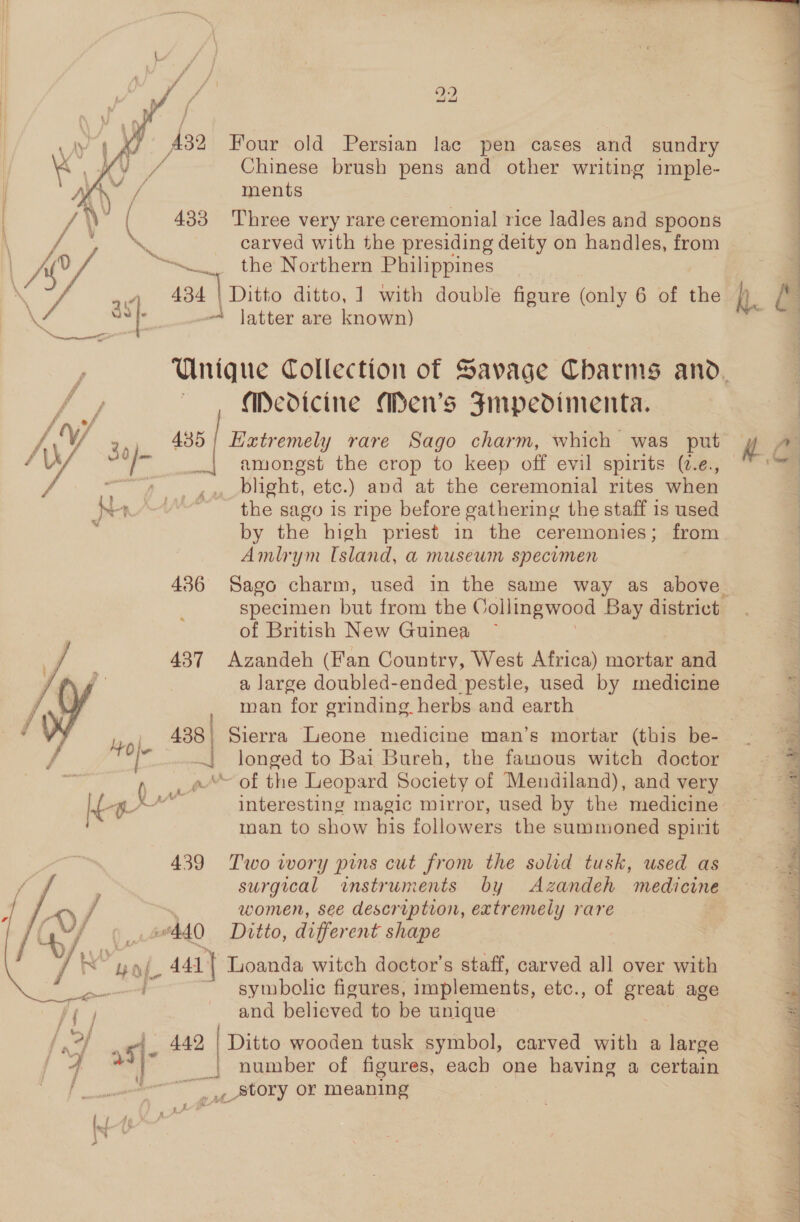 22
432 Four old Persian lac pen cases and sundry
Chinese brush pens and other writing imple-
ments
433 Three very rare ceremonial rice ladles and spoons
carved with the presiding deity on handles, from
the Northern Philippines
434 Ditto ditto, 1 with double figure (only 6 of the
35/- latter are known)
Unique Collection of Savage Charms and
Medicine Men's Impedimenta.
435 Extremely rare Sago charm, which was put
30/- amongst the crop to keep off evil spirits (i.e.,
blight, etc.) and at the ceremonial rites when
the sago is ripe before gathering the staff is used
by the high priest in the ceremonies; from
Amlrym Island, a museum specimen
436 Sago charm, used in the same way as above
specimen but from the Collingwood Bay district
of British New Guinea
437 Azandeh (Fan Country, West Africa) mortar and
a large doubled-ended pestle, used by medicine
man for grinding herbs and earth
438 Sierra Leone medicine man's mortar (this be-
40/- longed to Bai Bureh, the famous witch doctor
of the Leopard Society of Mendiland), and very
interesting magic mirror, used by the medicine
man to show his followers the summoned spirit
439 Two ivory pins cut from the solid tusk, used as
surgical instruments by Azandeh medicine
women, see description, extremely rare
440 Ditto, different shape
40/- 441 Loanda witch doctor's staff, carved all over with
symbolic figures, implements, etc., of great age
and believed to be unique
442 Ditto wooden tusk symbol, carved with a large
25/- number of figures, each one having a certain
story or meaning